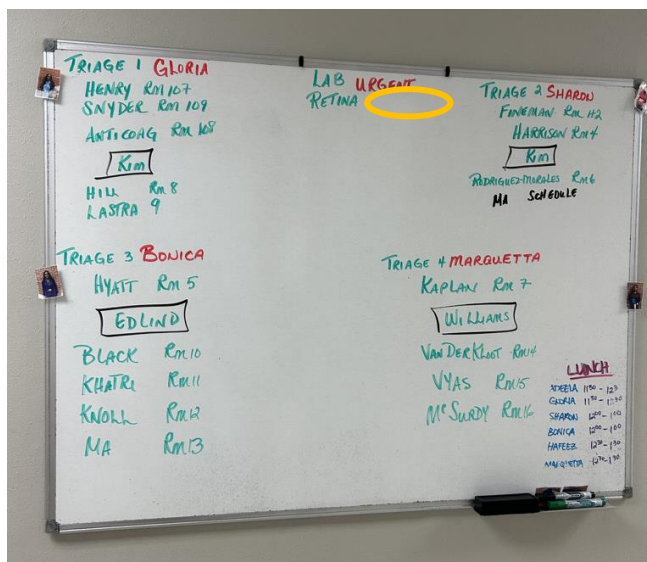 TRIAGE 1 GLORIA
HENRY Rm 107
SNYDER Rm 109
ANTICOAG Rm 108
Kim
HILL Rm 8
LASTRA 9
LAB URGENT
RETINA
TRIAGE 2 SHARON
FINEMAN Rm #2
HARRISON Rm 4
Kim
RODRIGUEZ-MORALES Rm 6
MA SCHEDULE
TRIAGE 3 BONICA
HYATT Rm 5
EDLIND
BLACK Rm 10
KHATRI Rm 11
KNOLL Rm 12
MA Rm 13
TRIAGE 4 MARQUETTA
KAPLAN Rm 7
WILLIAMS
VANDERKLOOT Rm 14
VYAS Rm 15
McSURDY Rm 16
LUNCH
ADEELA 1130 -
GLORIA 1130 - 1230
SHARON 1200 - 100
BONICA 1200 - 100
HAFEEZ 1230 - 130
MARQUETTA 1230 - 130